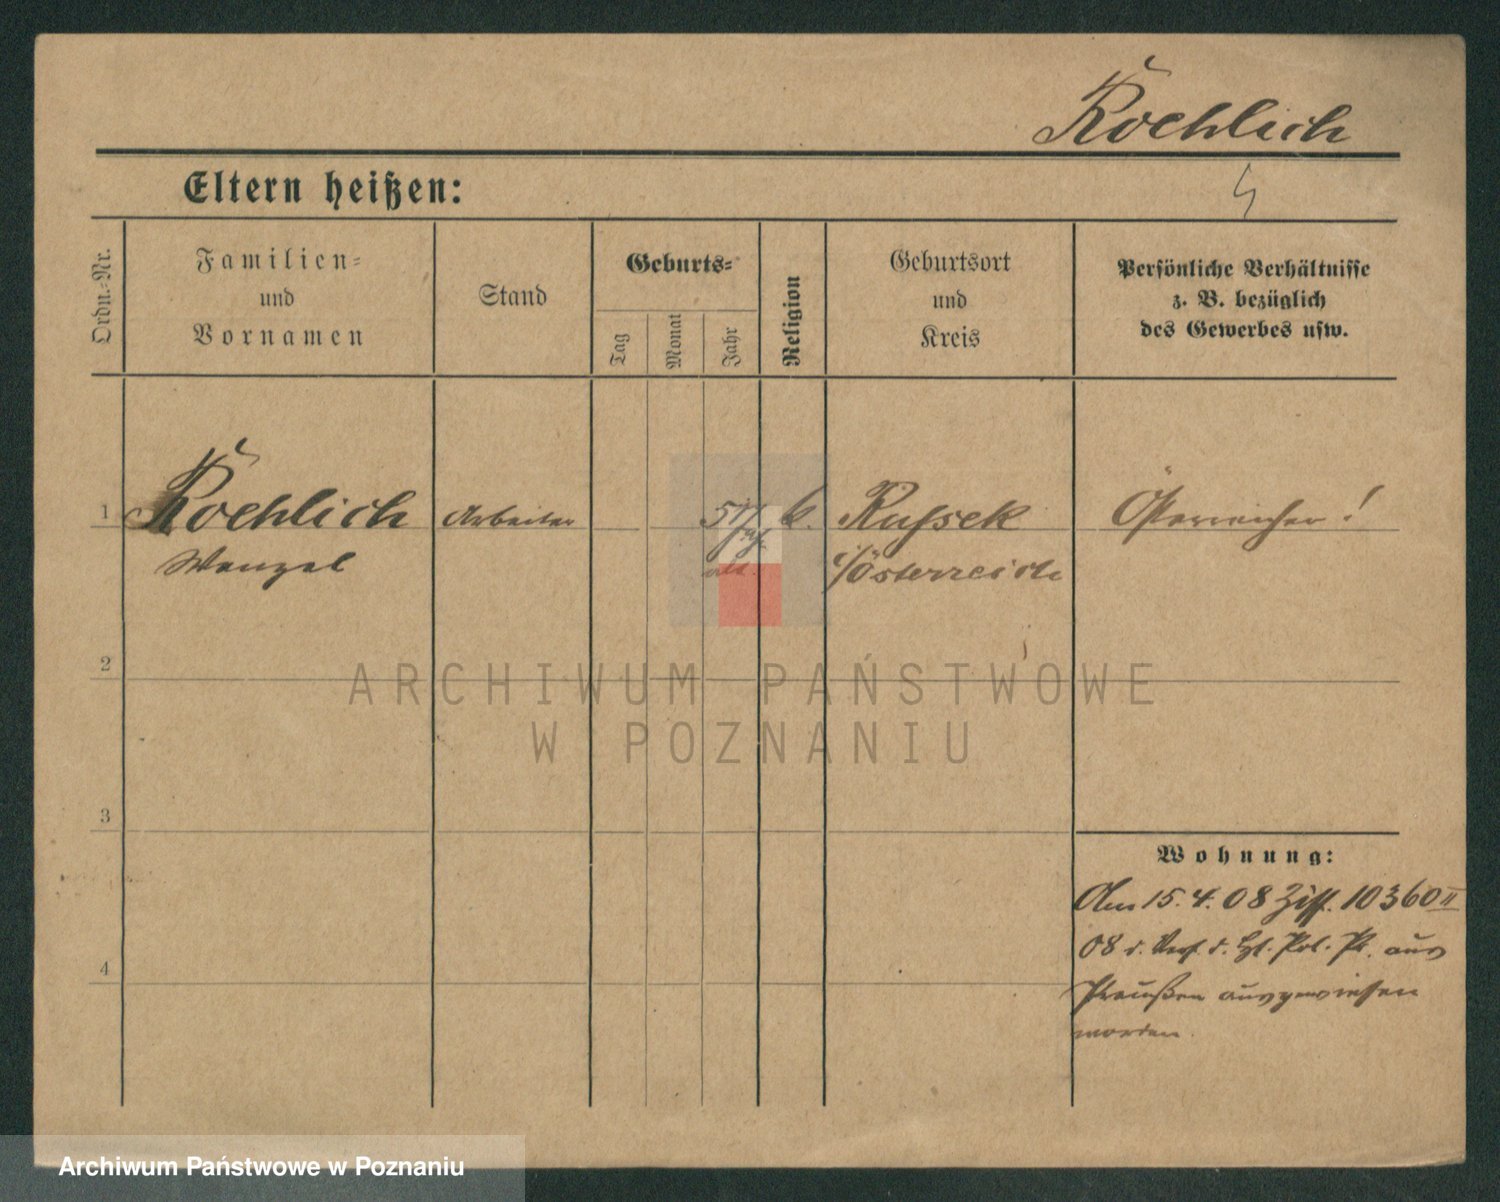 Koehlich
Eltern heißen:
Ordn.-Nr.
Familien-
und
Vornamen
Stand
Geburts-
Tag
Monat
Jahr
Religion
Geburtsort
und
Kreis
Persönliche Verhältnisse
z. B. bezüglich
des Gewerbes usw.
1
Koehlich
Wenzel
Arbeiter
alt.
k.
Russek
i/Österreich
Österreicher!
2
ARCHIWUM PAŃSTWOWE
W POZNANIU
3
Wohnung:
Am 15.4.08 10360 II
08 d. d. Pol. Pr. aus
4
Preußen ausgewiesen
worden.
Archiwum Państwowe w Poznaniu